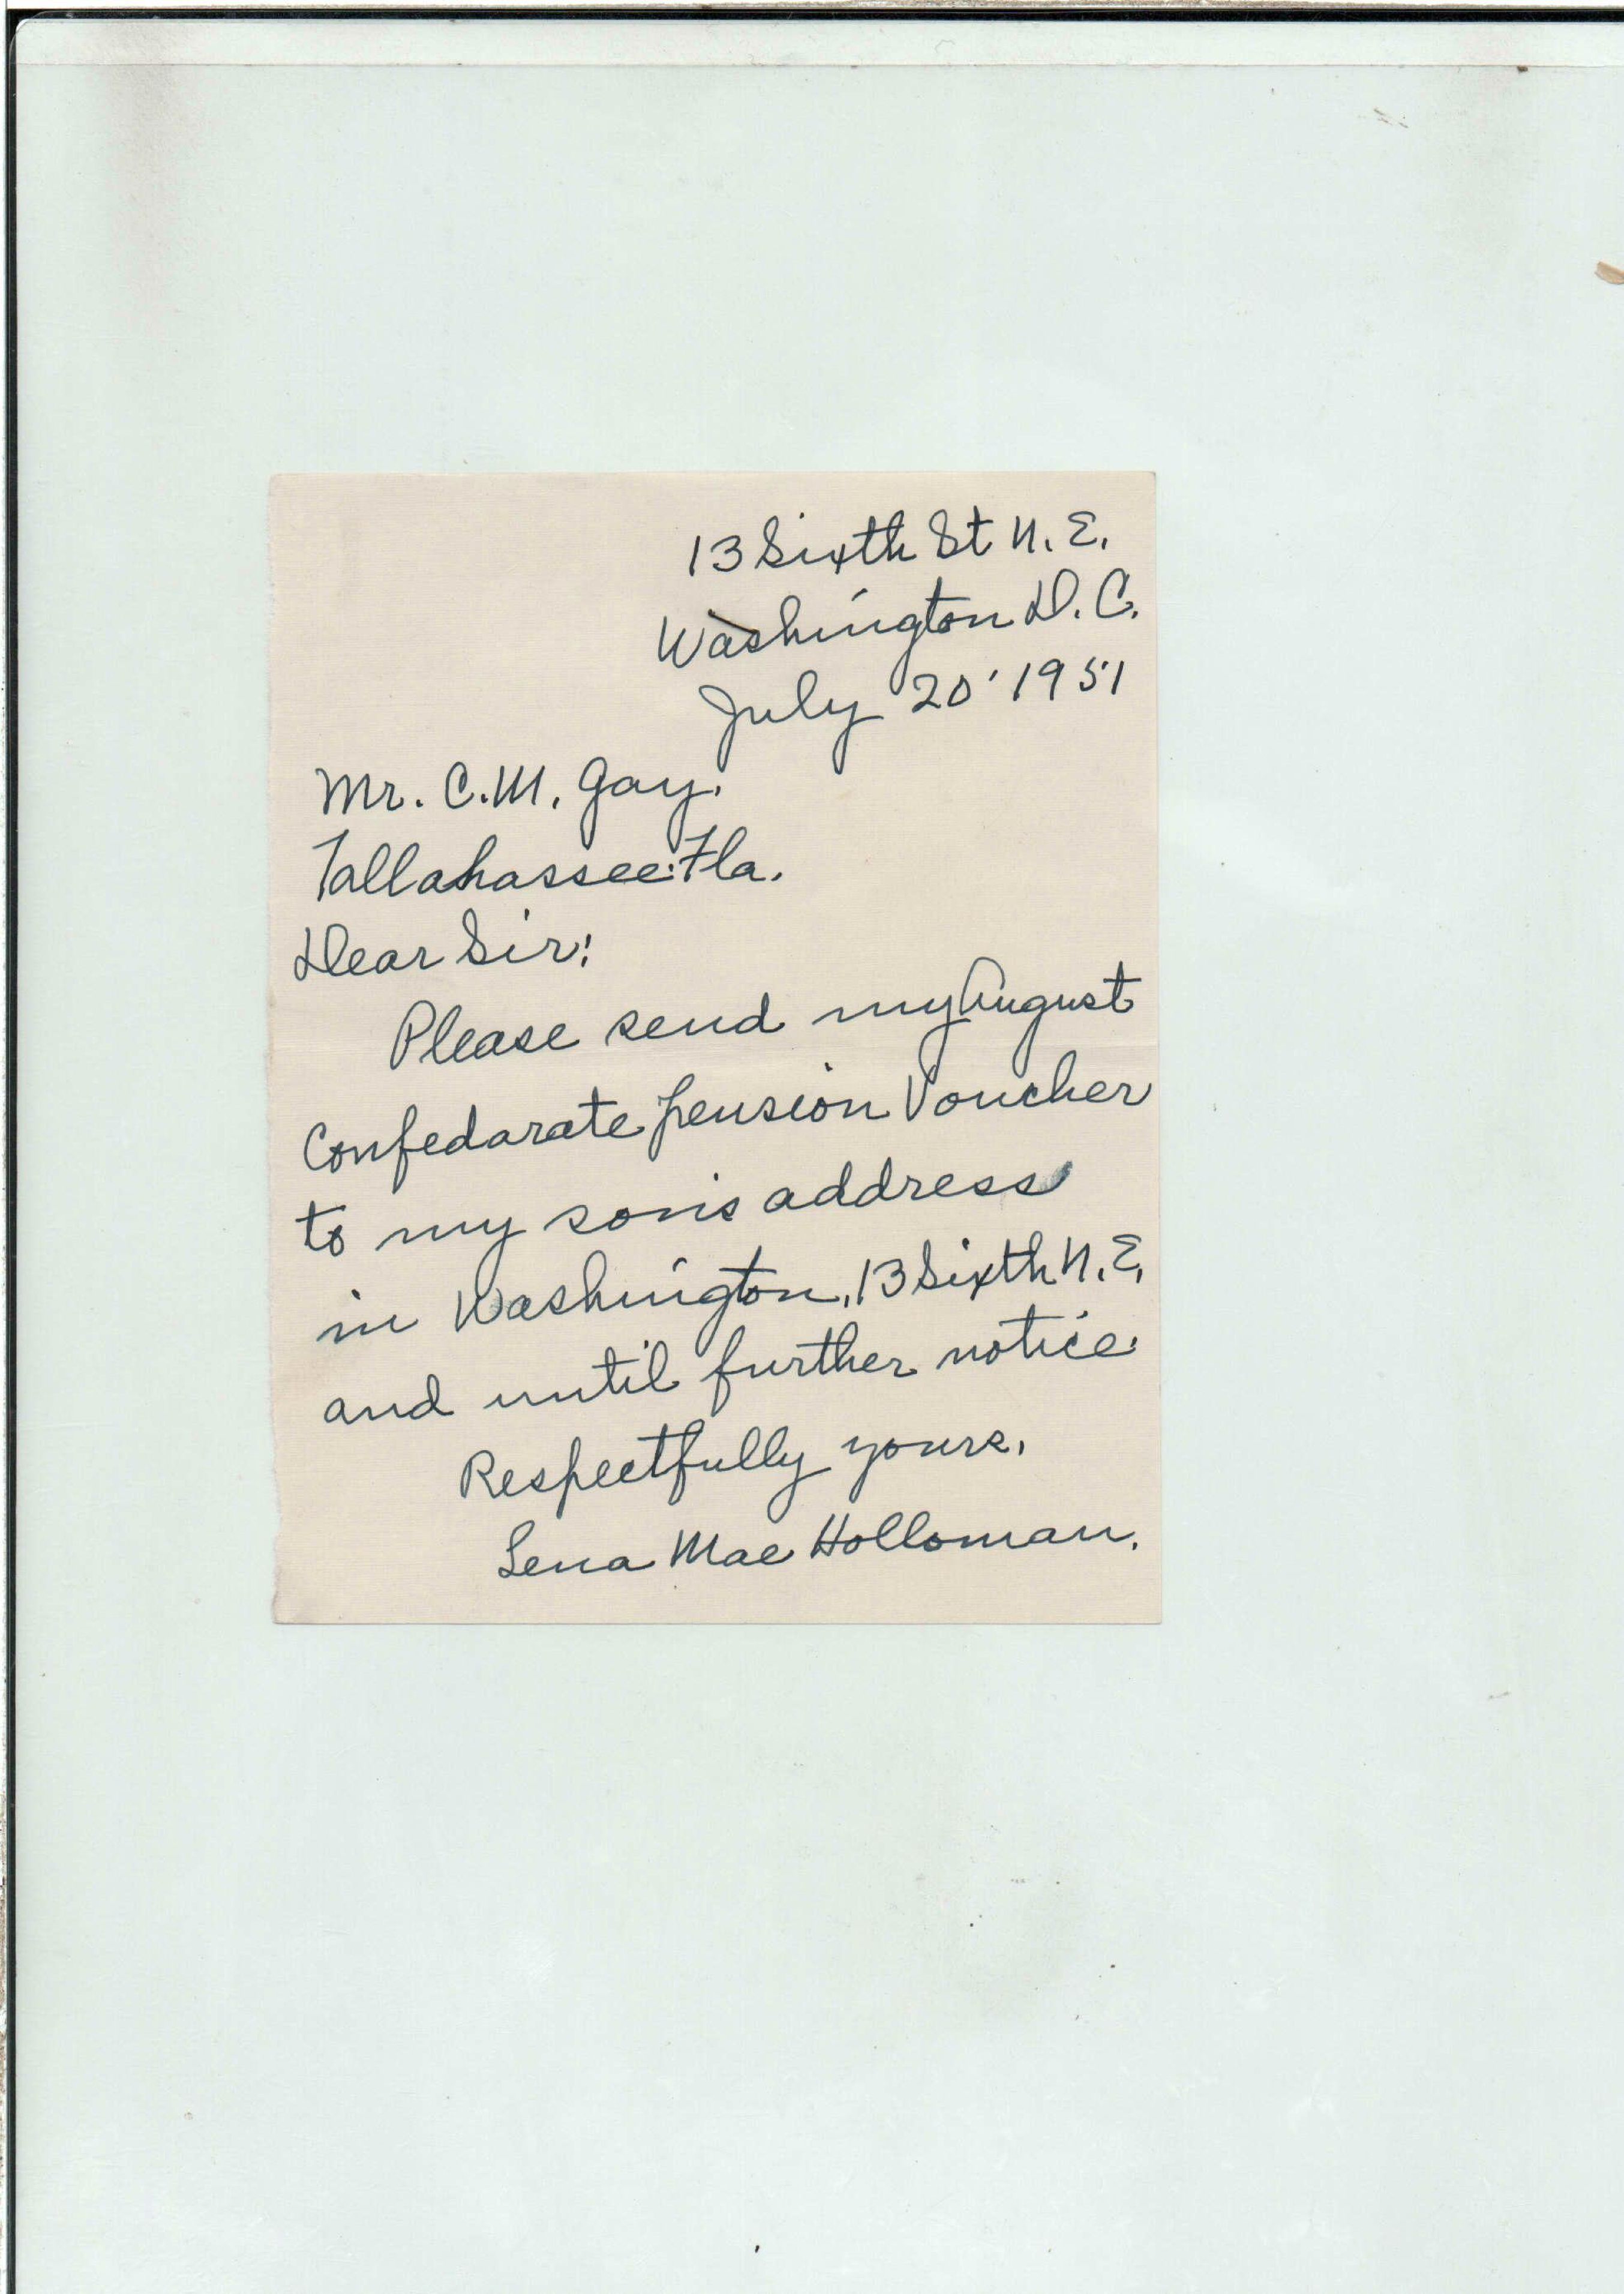 13 Sixth St N. E.
Washington D. C.
July 20' 1951
Mr. C. M. Gay.
Tallahassee: Fla.
Dear Sir:
Please send my August
Confedarate pension Voucher
to my son's address
in Washington, 13 Sixth N. E.
and until further notice.
Respectfully yours,
Lena Mae Holloman.